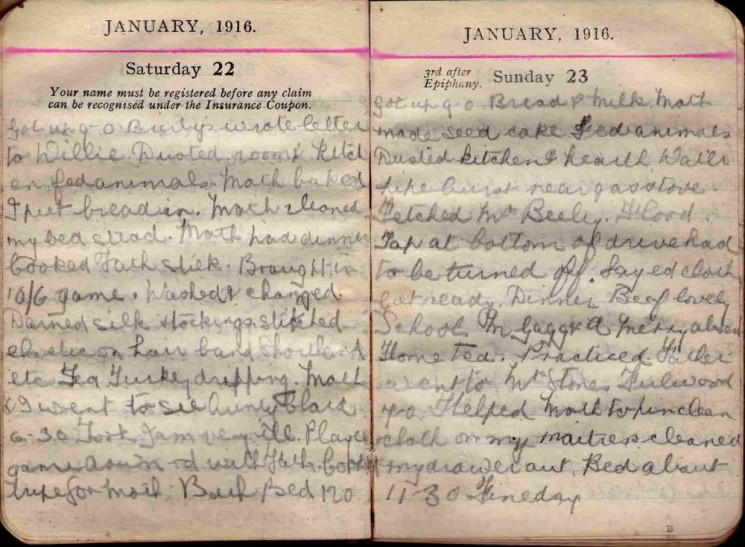 JANUARY, 1916.
Saturday 22
Your name must be registered before any claim
can be recognised under the Insurance Coupon.
Got up 9-0 wrote letter
to Willie. Dusted room & kitch
en fed animals. Moth baked
I put bread in. Moth cleaned
my bed stead. Moth had dinner
Cooked Fath stek. Brought in
10/6 game. Washed & changed
Darned silk stockings stitched
elastic on hair band
etc Tea Turkey dripping. Moth
& I went to see Aunty Clara
6-30 Took Jam very ill. Played
game with Fath.
tripe for moth. Bath Bed 12 0
JANUARY, 1916.
3rd after
Epiphany. Sunday 23
Got up 9-0. Bread & Milk. Moth
made seed cake Fed animals
Dusted kitchen & hearth Water
pipe burst near gas stove
Fetched Mr Beeley. Flood.
Tap at bottom of drive had
to be turned off. Layed cloth
Got ready. Dinner Beef lovely
School. Mr
Home Tea. Practiced. Father
went to Mr Stones Fulwood
Helped Moth to pin clean
cloth on my mattress cleaned
my drawer out. Bed about
11-30 Fine day
B